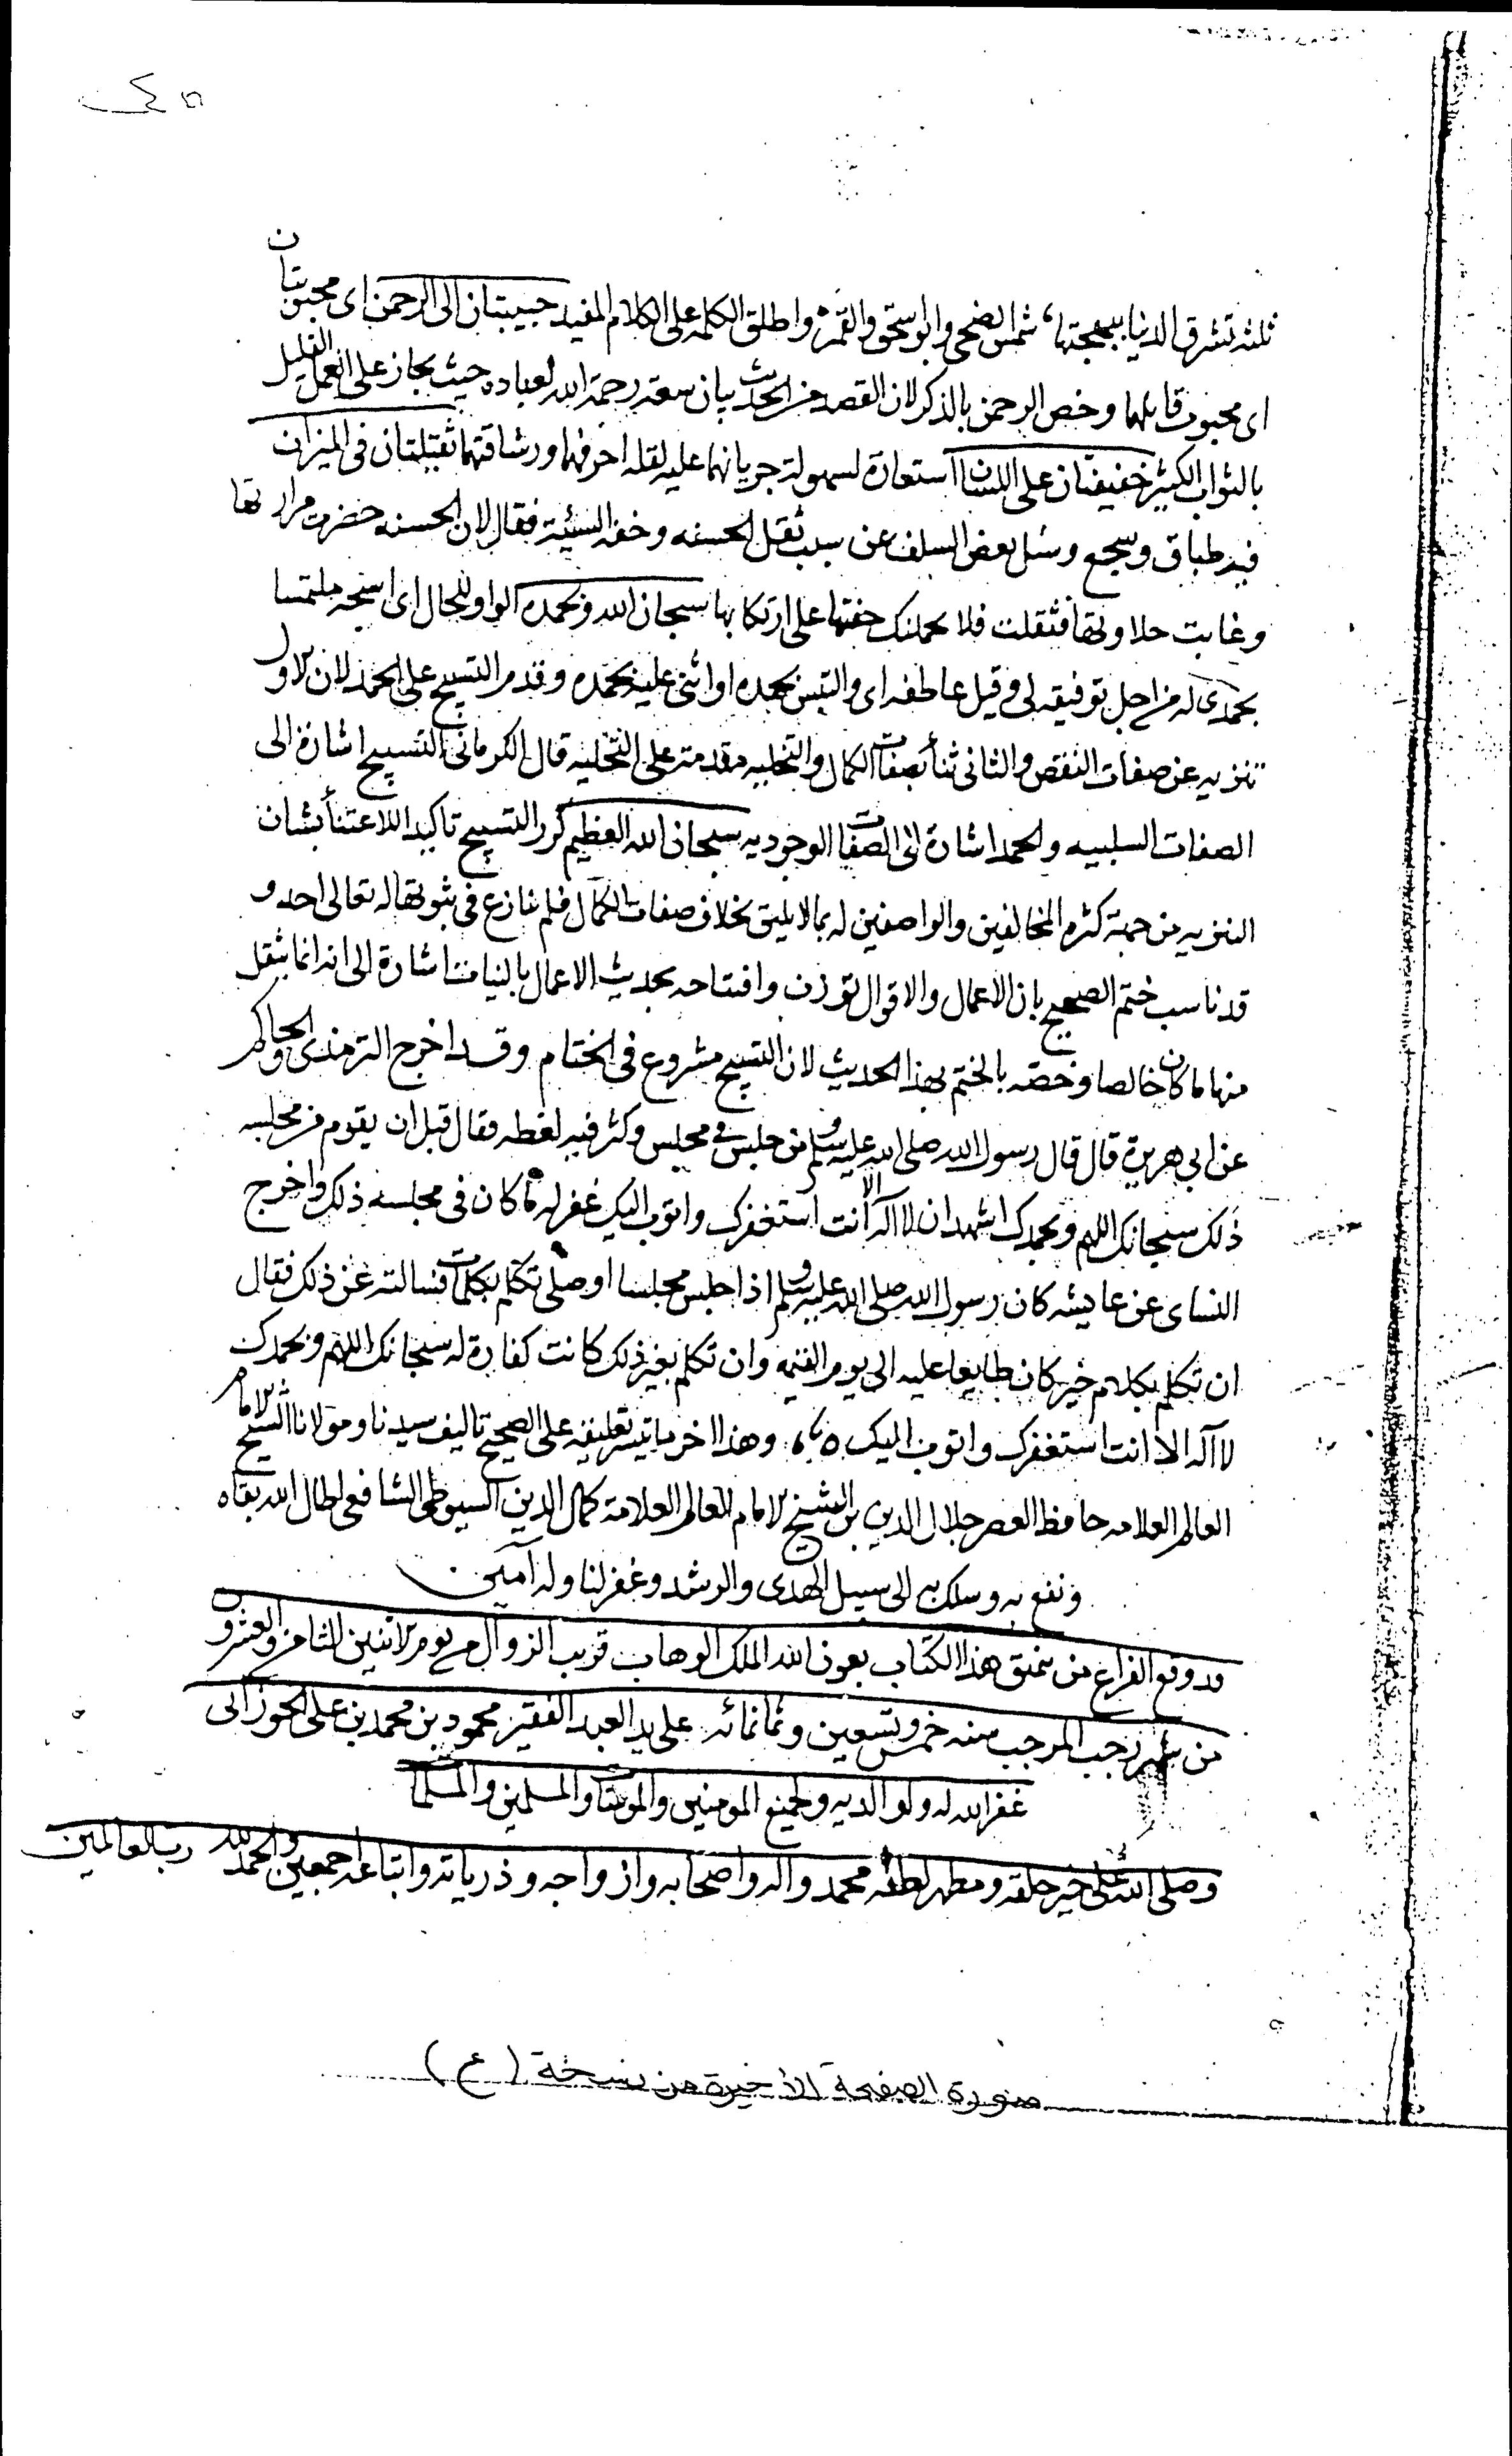 ثلثة تشرق الدنيا ببهجتها، شمس الضحى وابو اسحق والقمر، واطلق الكلمه على الكلام المفيد حبيبتان الى الرحمن اى محبوبتان
اى محبوب قايلهما وخص الرحمن بالذكر لان القصد من الحديث بيان سعة رحمة الله لعباده حيث يجاز على العمل القليل
بالثواب الكثير خفيفتان على اللسان استعارة لسهولة جريانهما عليه لقلة احرفهما ورشاقتهما ثقيلتان فى الميزان
فيه طباق وسجع وسئل بعض السلف عن سبب ثقل الحسنه وخفة السيئة فقال لان الحسنه حضرت مرارتها
وغابت حلاوتها فثقلت فلا يحملنك خفتها على ارتكابها سبحان الله وبحمده الواو للحال اى اسبحه ملتمسا
بحمدى له من اجل توفيقه لى وقيل عاطفه اى والتبس بحمده او اثنى عليه بحمده وقدم التسبيح على الحمد لان الاول
تنزيه عن صفات النقص والثانى ثناء بصفات الكمال والتخليه مقدمة على التحليه قال الكرمانى التسبيح اشارة الى
الصفات السلبيه والحمد اشارة الى الصفات الوجوديه سبحان الله العظيم كرر التسبيح تاكيدا للاعتناء بشان
التنزيه من جهة كثرة المخالفين والواصفين له بما لا يليق بخلاف صفات الكمال فلم ينازع فى ثبوتها له تعالى احد و
قد ناسب ختم الصحيح بان الاعمال والاقوال توزن وافتتاحه بحديث الاعمال بالنيات اشارة الى انه انما يثقل
منها ما كان خالصا وخصه بالختم بهذا الحديث لان التسبيح مشروع فى الختام وقد اخرج الترمذى والحاكم
عن ابى هريرة قال قال رسول الله صلى الله عليه وسلم من جلس فى مجلس وكثر فيه لغطه فقال قبل ان يقوم من مجلسه
ذلك سبحانك اللهم وبحمدك اشهد ان لا اله الا انت استغفرك واتوب اليك غفر له ما كان فى مجلسه ذلك واخرج
النساى عن عايشه كان رسول الله صلى الله عليه وسلم اذا جلس مجلسا او صلى تكلم بكلمات فسالته عن ذلك فقال
ان تكلم بكلام خير كان طابعا عليه الى يوم القيمه وان تكلم بغير ذلك كانت كفارة له سبحانك اللهم وبحمدك
لا اله الا انت استغفرك واتوب اليك وهذا اخر ما تيسر تعليقه على الصحيح تاليف سيدنا ومولانا الشيخ الامام
العالم العلامه حافظ العصر جلال الدين بن الشيخ الامام العالم العلامة كمال الدين السيوطى الشافعى اطال الله بقاه
ونفع به وسلك به الى سبيل الهدى والرشد وغفر لنا وله آمين
قد وقع الفراغ من تنميق هذا الكتاب بعون الله الملك الوهاب قريب الزوال من يوم الاثنين الثامن والعشرون
من شهر رجب المرجب سنه خمس وتسعين وثمانمائه على يد العبد الفقير محمود بن محمد بن على
غفر الله له ولوالديه ولجميع المومنين والمومنات والمسلمين والمسلمات
وصلى الله على خير خلقه ومظهر لطفه محمد واله واصحابه وازواجه وذرياته واتباعه اجمعين والحمد لله رب العالمين
صورة الصفحة الأخيرة من نسخة (ع)